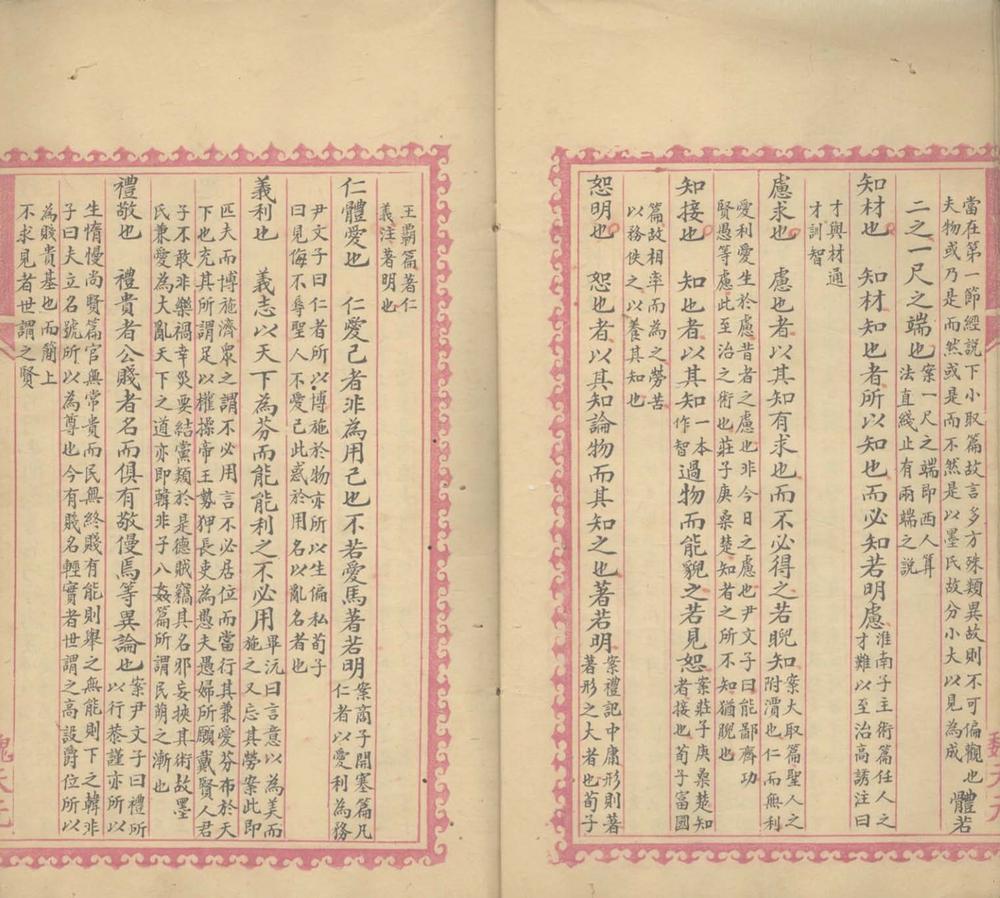 當在第一節經說下小取篇故言多方殊類異故則不可偏觀也
體若
夫物或乃是而然或是而不然是以墨氏故分小大以見為成
二之一尺之端也
案一尺之端即西人算
法直綫止有兩端之說
知材也 知材知也者所以知也而必知若明慮
淮南子主術篇任人之
才難以至治高誘注曰
才與材通
才訓智
慮求也 慮也者以其知有求也而不必得之若睨知
案大取篇聖人之
附瀆也仁而無利
愛利愛生於慮昔者之慮也非今日之慮也尹文子曰能鄙齊功
賢愚等慮此至治之術也莊子庚桑楚知者之所不知猶睨也
知接也 知也者以其知
一本
作智
過物而能貌之若見恕
案莊子庚桑楚知
者接也荀子富國
篇故相率而為之勞苦
以務佚之以養其知也
恕明也 恕也者以其知論物而其知之也著若明
案禮記中庸形則著
著形之大者也荀子
王霸篇著仁
義注著明也
仁體愛也 仁愛己者非為用己也不若愛馬著若明
案商子開塞篇凡
仁者以愛利為務
尹文子曰仁者所以博施於物亦所以生偏私荀子
曰見侮不辱聖人不愛己此惑於用名以亂名者也
義利也 義志以天下為芬而能能利之不必用
畢沅曰言意以為美而
施之又忘其勞案此即
匹夫而博施濟眾之謂不必用言不必居位而當行其兼愛芬布於天
下也充其所謂足以摧操帝王勢狎長吏為愚夫愚婦所願戴賢人君
子不敢非樂禍幸災要結黨類於是德賊竊其名邪妄挾其術故墨
氏兼愛為大亂天下之道亦即韓非子八姦篇所謂民萌之漸也
禮敬也 禮貴者公賤者名而俱有敬僈焉等異論也
案尹文子曰禮所
以行恭謹亦所以
生惰慢尚賢篇官無常貴而民無終賤有能則舉之無能則下之韓非
子曰夫立名號所以為尊也今有賤名輕實者世謂之高設爵位所以
為賤貴基也而簡上
不求見者世謂之賢